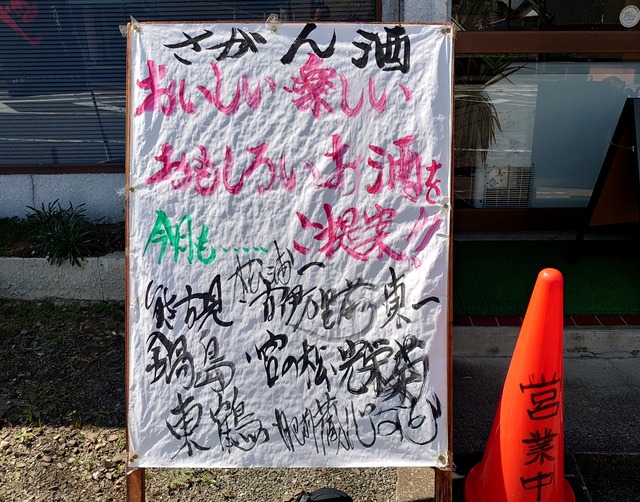 さがん酒
おいしい・楽しい
おもしろいお酒を
今月も‥‥‥ ご提案!!
能古見 松浦一 古伊万里 前 東一
鍋島・宮の松 光栄菊
東鶴・肥前蔵心
営業中